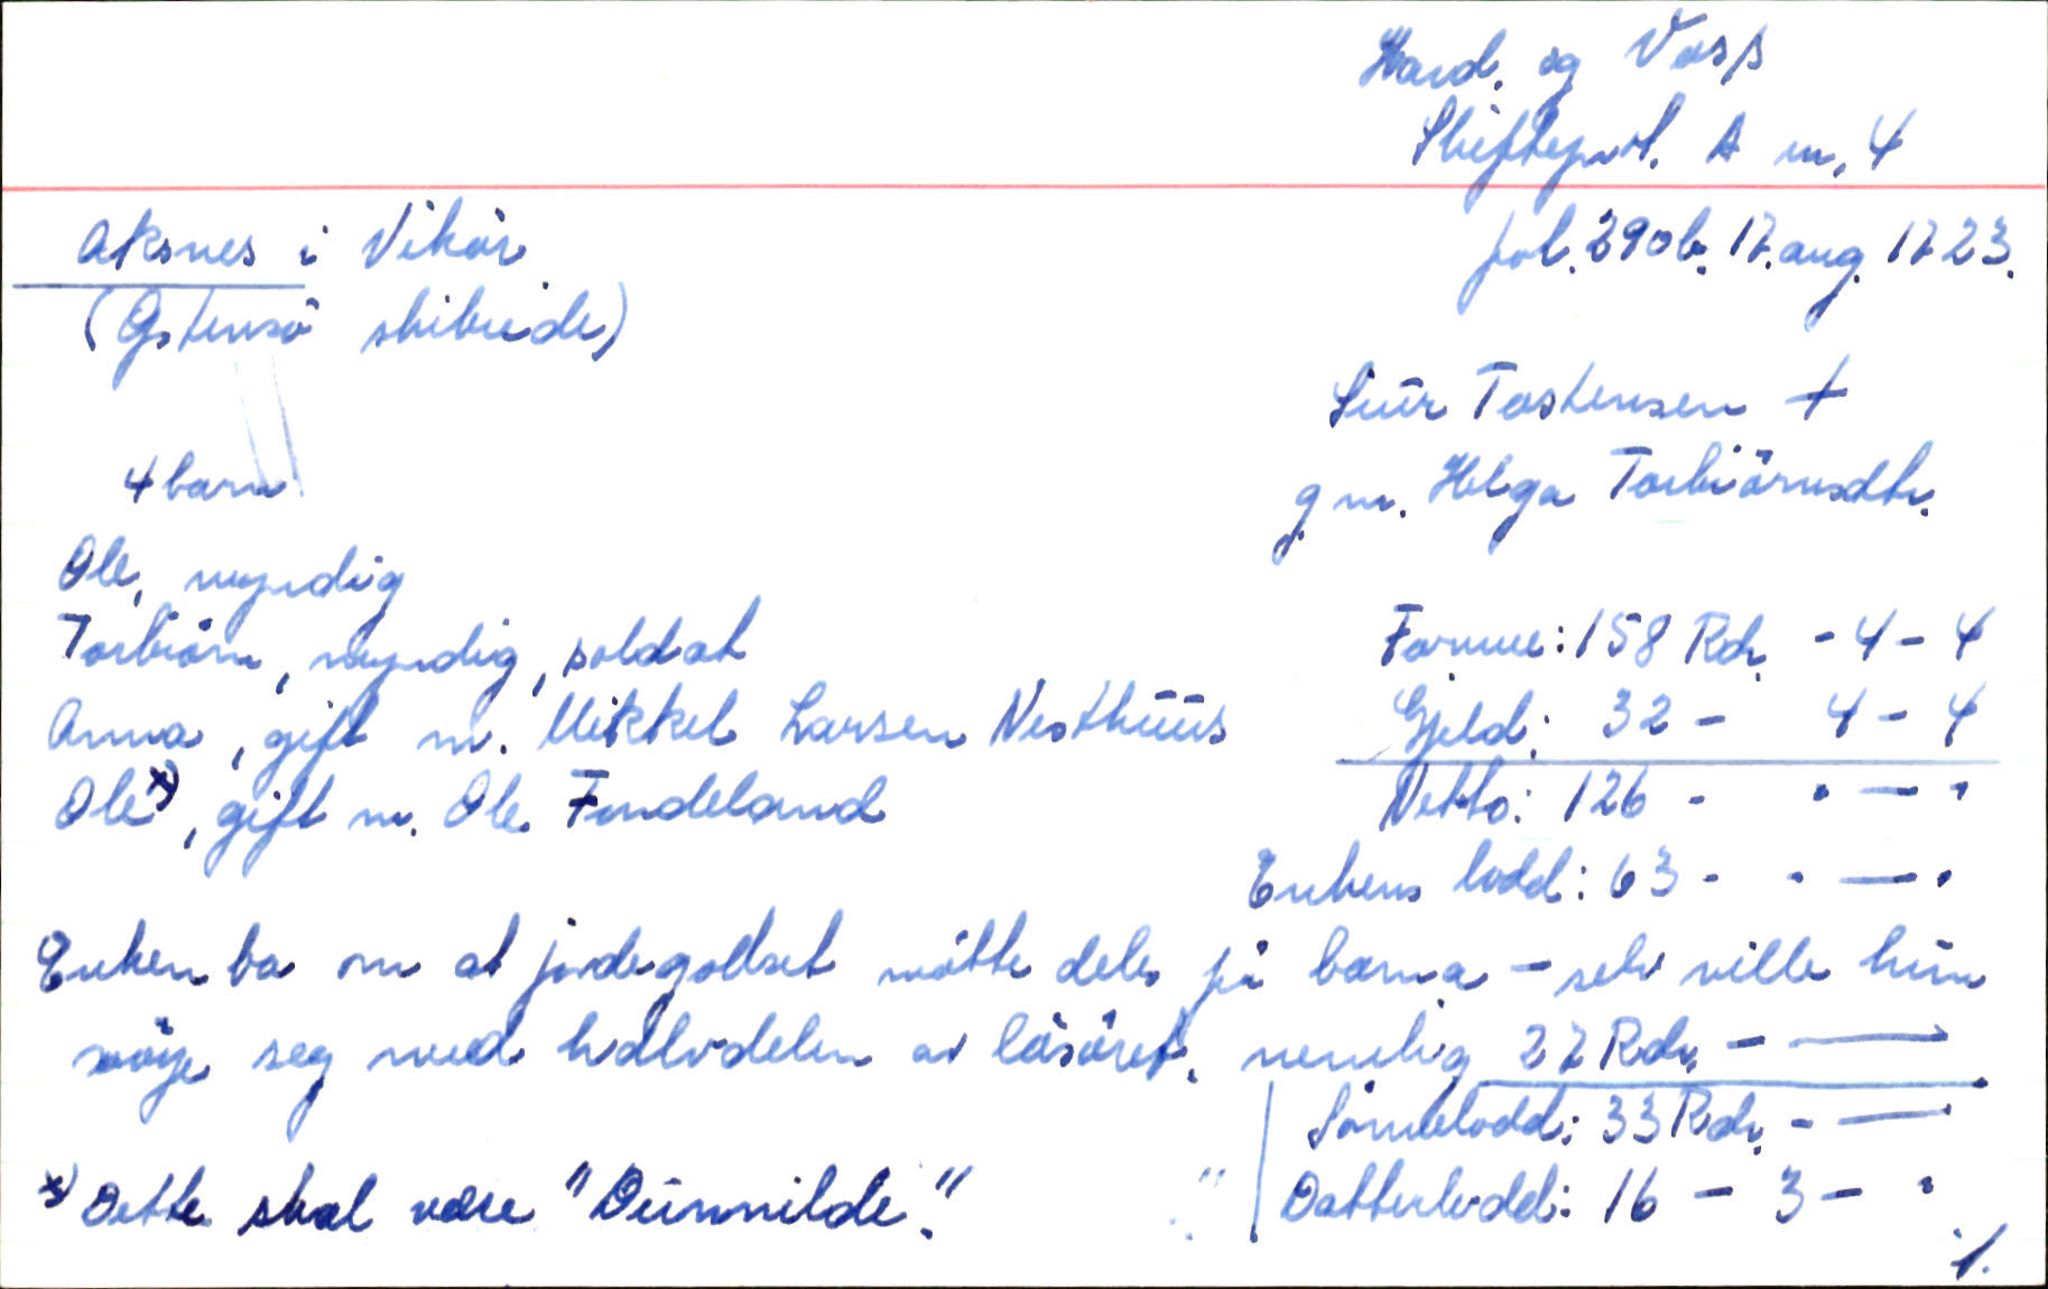 Hard. og Voss
Skifteprot. A nr. 4
Aksnes i Vikör
fol. 390b. 17. aug. 1723.
(Östensö skibreide)
Siur Tostensen +
4 barn
g.m. Helga Torbiörnsdtr.
Ole, myndig
Torbiörn, myndig, soldat
Formue: 158 Rdr. - 4 - 4
Anna, gift m. Mikkel Larsen Nesthuus
Gjeld: 32 - 4 - 4
Ole x), gift m. Ole Fondeland
Netto: 126 - " — "
Enkens lodd: 63 - " — "
Enken ba om at jordegodset måtte deles på barna - selv ville hun
nöye seg med halvdelen av lösöret, nemlig 27 Rdr. - —
Sönnelodd: 33 Rdr. - —
x) Dette skal være "Dünnilde."
Datterlodd: 16 - 3 - "
1.